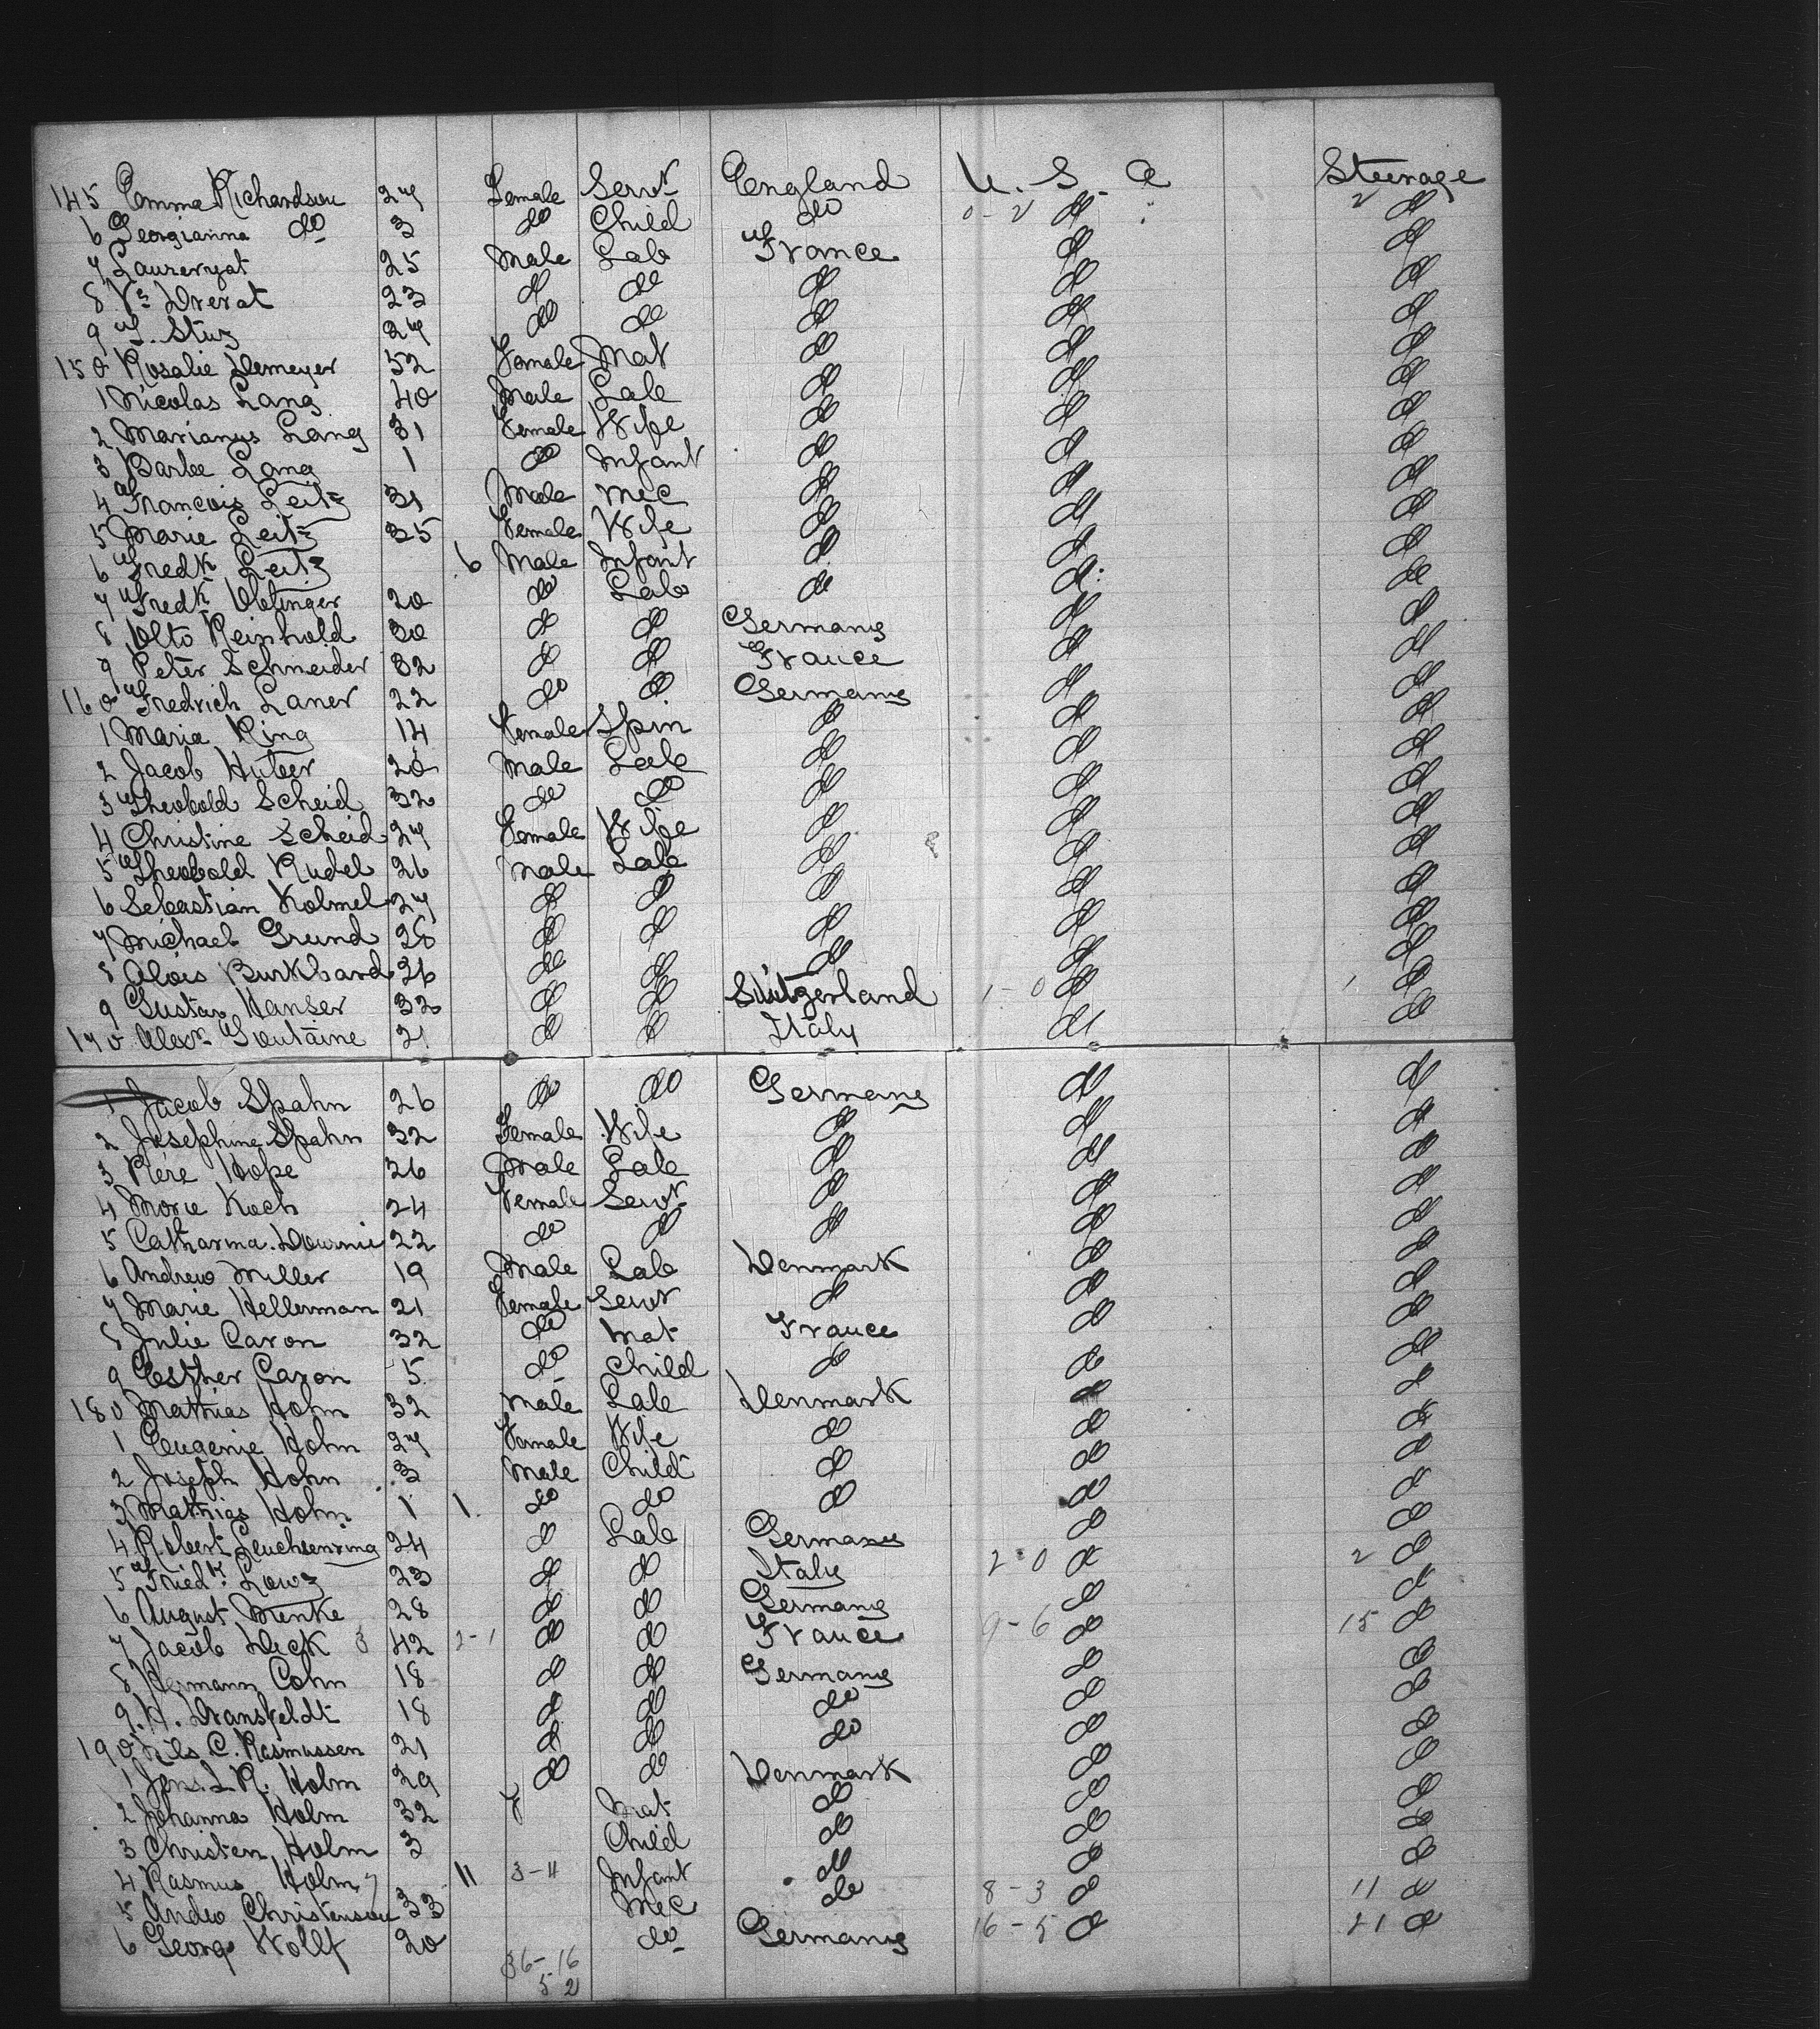 145 Emma Richardson 27 Female Servt England U. S. A Steerage
6 Georgianna do 3 do Child do 0-2 do 2 do
7 Lauzeryat 25 Male Lab France do do
8 Vr Drerat 23 do do do do do
9 F. Stuz 27 do do do do do
150 Rosalie Demeyer 52 Female Mat do do do
1 Nicolas Lang 40 Male Lab do do do
2 Marianys Lang 31 Female Wife do do do
3 Barbe Lang 1 do Infant do do do
4 Francois Leitz 31 Male Mec do do do
5 Marie Leitz 35 Female Wife do do do
6 Fredk Leitz 6 Male Infant do do do
7 Fredk Obtinger 20 do Lab do do do
8 Otto Reinhold 30 do do Germany do do
9 Peter Schneider 32 do do France do do
160 Fredrich Laner 22 do do Germany do do
1 Maria Ring 14 Female Spin do do do
2 Jacob Huber 20 Male Lab do do do
3 Theobold Scheid 32 do do do do do
4 Christine Scheid 27 Female Wife do do do
5 Theobold Rudel 26 Male Lab do do do
6 Sebastian Kolmel 27 do do do do do
7 Michael Grund 28 do do do do do
8 Alois Burkhard 36 do do do do do
9 Gustav Hanser 32 do do Switzerland 1-0 do 1 do
170 Alexr Fontaine 21 do do Italy do do
1 Jacob Spahn 26 do do Germany do do
2 Josephine Spahn 32 Female Wife do do do
3 Pére Hope 26 Male Lab do do do
4 Marie Koch 24 Female Servt do do do
5 Catharina Downie 22 do do do do do
6 Andrew Miller 19 Male Lab Denmark do do
7 Marie Hellerman 21 Female Servt do do do
8 Julie Caron 32 do Mat France do do
9 Esther Caron 5 do Child do do do
180 Mathias Hohn 32 Male Lab Denmark do do
1 Eugenie Hohn 27 Female Wife do do do
2 Joseph Hohn 3 Male Child do do do
3 Mathias Hohn 1 1 do do do do do
4 Robert Leuchsenring 24 do Lab Germany do do
5 Friedk Lowz 23 do do Italy 2-0 do 2 do
6 August Menke 28 do do Germany do do
7 Jacob Dick 3 42 2-1 do do France 9-6 do 15 do
8 Hermann Cohn 18 do do Germany do do
9 H. Dransfeldt 18 do do do do do
190 Nils C. Rasmussen 21 do do do do do
1 Jens L. R. Holm 29 do do Denmark do do
2 Johanna Holm 32 F Mat do do do
3 Christen Holm 3 Child do do do
4 Rasmus Holm 11 3-11 Infant do do do
5 Andw Christensen 33 Mec do 8-3 do 11 do
6 George Wollf 20 do Germany 16-5 do 21 do
36-16
5 2